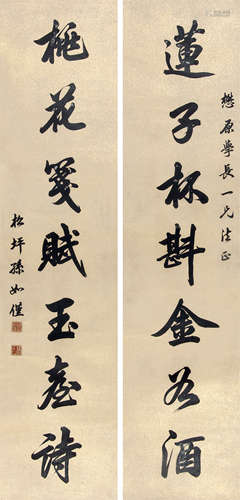 懋原學長一兄法正
蓮子杯斟金谷酒
桃花箋賦玉臺詩
松坪孫如僅